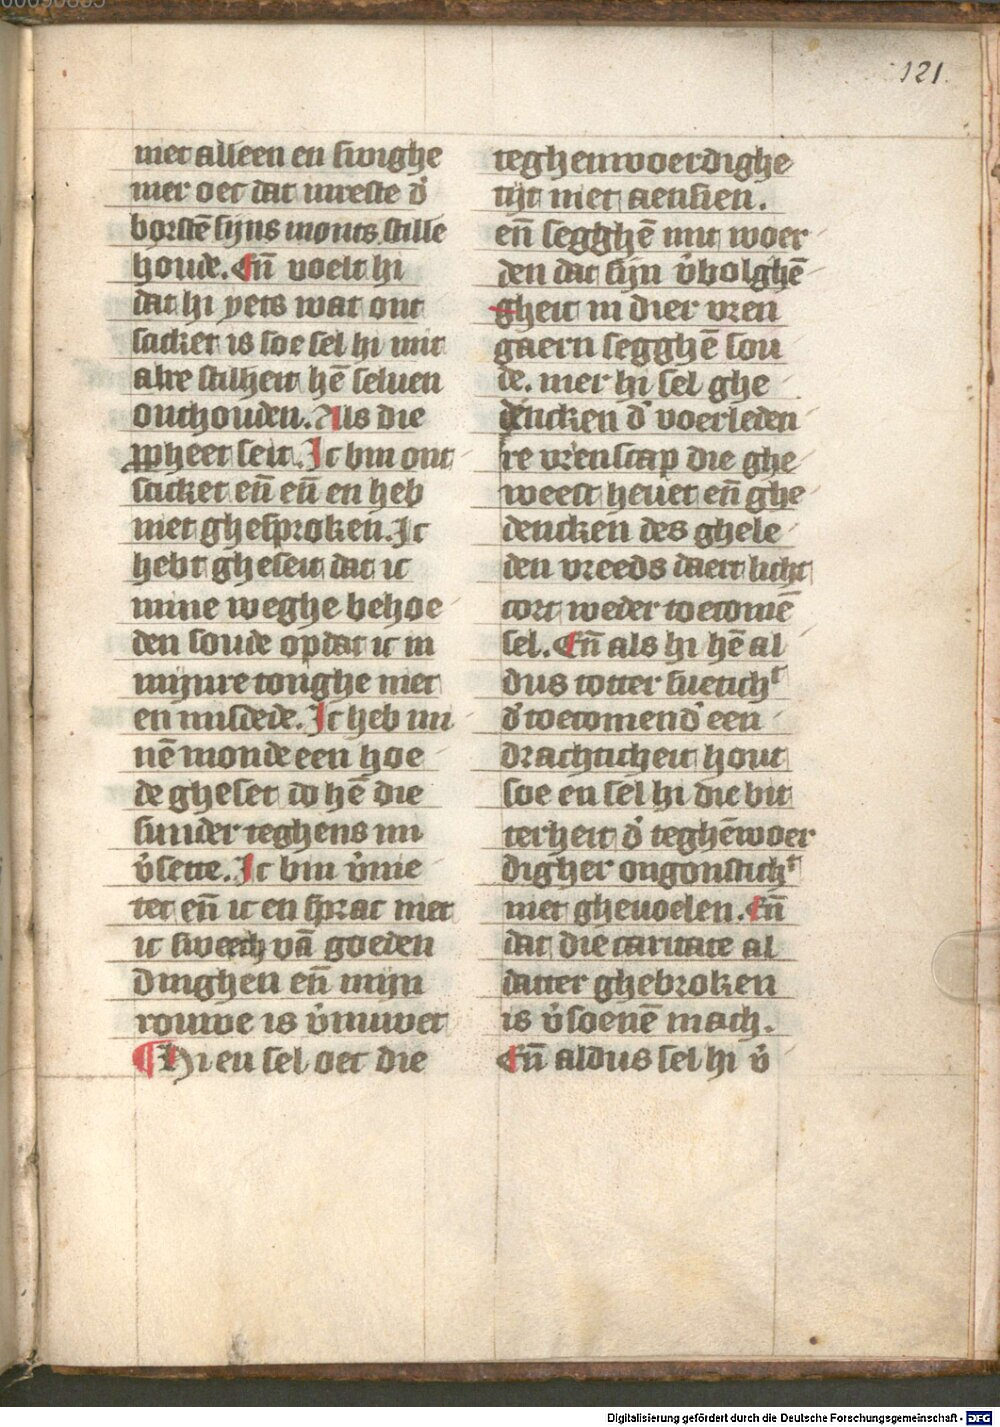 121
niet alleen en swighe
mer oec dat inreste d̉
borstē sijns monts stille
houde. Eñ voelt hi
dat hi yets wat ont
stacket is soe sel hi mit
alre stilheit hē seluen
onthouden. Als die
ꝓpheet seit. Ic bin ont
sticket eñ eñ en heb
niet ghesproken. Ic
hebt gheseit dat ic
mine weghe behoe
den soude opdat ic in
mijnre tonghe niet
en misdede. Ic heb mi
nē monde een hoe
de gheset do hē die
sunder teghens mi
v̉sette. Ic bin v̉nie
tet eñ ic en sprac niet
ic sweech vā goeden
dinghen eñ mijn
rouwe is v̉nuwet
¶ Hi en sel oec die
teghenwoerdighe
tijt niet aensien.
eñ segghē mit woer
den dat sijn v̉bolghē
gheit in dier vren
gaern segghē sou
de. mer hi sel ghe
dencken d̉ voerleden
re vr̉enscap die ghe
weest heuet eñ ghe
dencken des ghele
den vreeds daert licht
cort weder toecomē
sel. Eñ als hi hē al
dus totter suetichᵗ
d̉ toecomend̉ een
drachticheit hout
soe en sel hi die bit
terheit d̉ teghēwoer
digher ongonstichᵗ
niet gheuoelen. Eñ
dat die caritate al
datter ghebroken
is v̉soenē mach.
Eñ aldus sel hi v̉
Digitalisierung gefördert durch die Deutsche Forschungsgemeinschaft - DFG